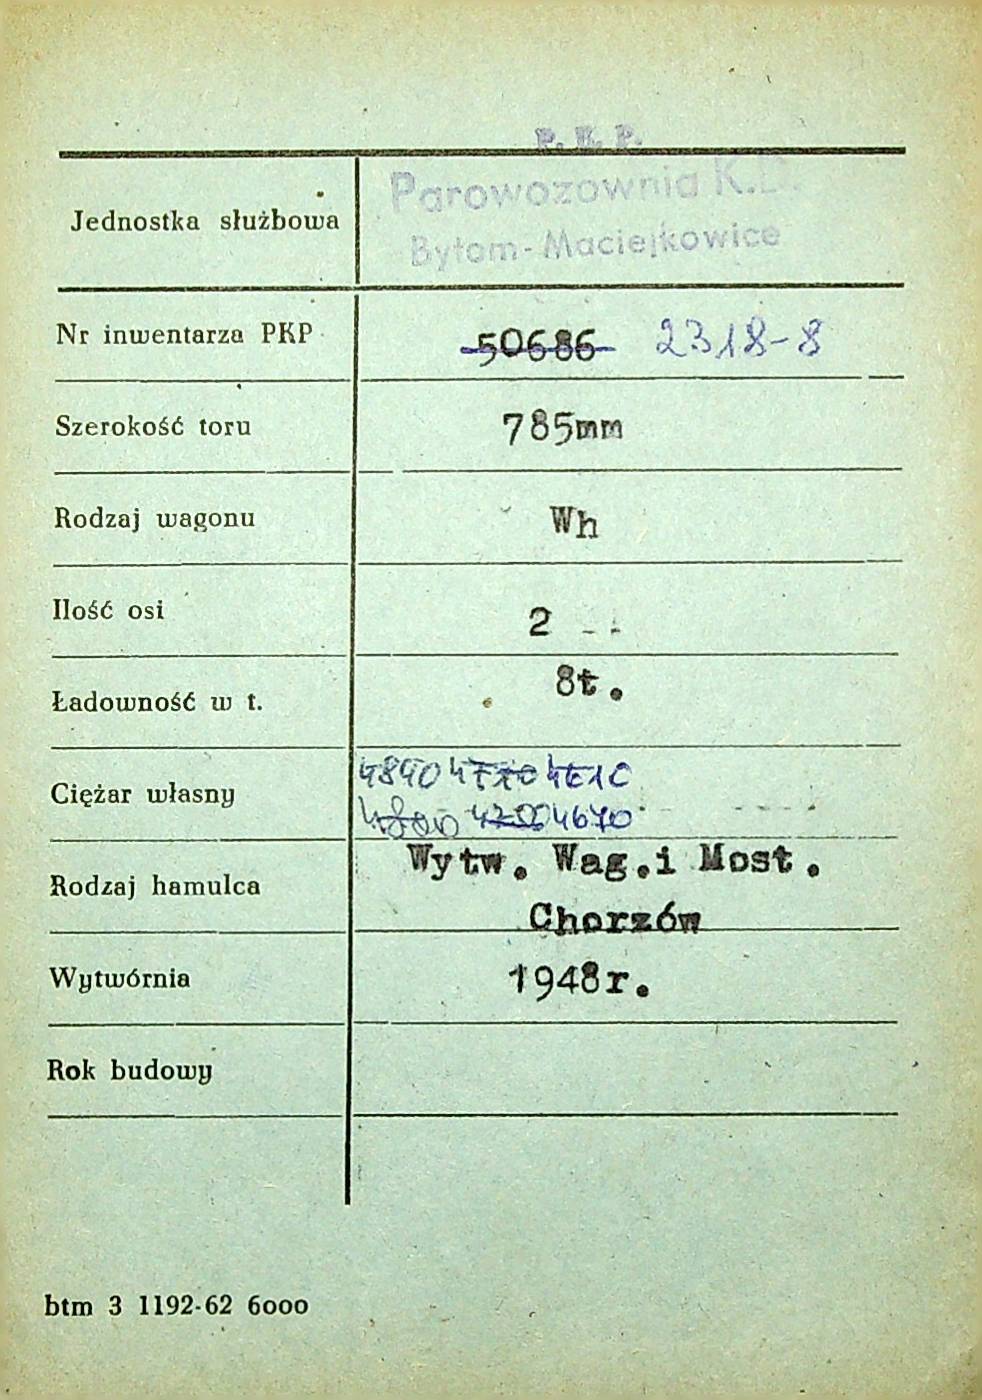 P. K. P.
Parowozownia K.D.
Jednostka służbowa
Bytom-Maciejkowice
Nr inwentarza PKP 50686 2318-8
Szerokość toru 785mm
Rodzaj wagonu Wh
Ilość osi 2
Ładowność w t. 8t.
4840 4770 4610
Ciężar własny
4800 4200 4670
Wytw. Wag.i Most.
Rodzaj hamulca
Chorzów
Wytwórnia 1948r.
Rok budowy
btm 3 1192-62 6000